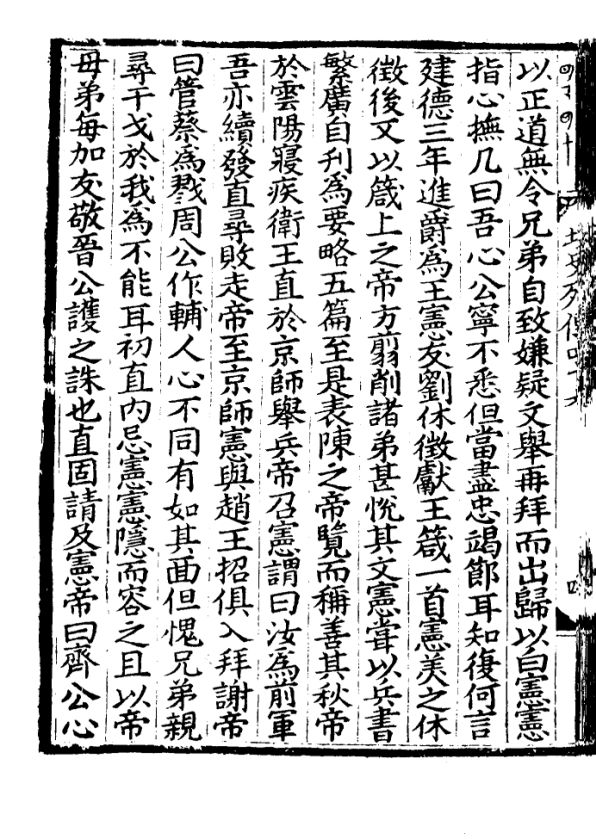 以正道無令兄弟自致嫌疑文舉再拜而出歸以白憲憲
指心撫几曰吾心公寧不悉但當盡忠竭節耳知復何言
建德三年進爵爲王憲友劉休徵獻王箴一首憲美之休
徵後又以箴上之帝方翦削諸弟甚悅其文憲嘗以兵書
繁廣自刊爲要略五篇至是表陳之帝覽而稱善其秋帝
於雲陽寢疾衛王直於京師舉兵帝召憲謂曰汝爲前軍
吾亦續發直尋敗走帝至京師憲與趙王招俱入拜謝帝
曰管蔡爲戮周公作輔人心不同有如其面但愧兄弟親
尋干戈於我爲不能耳初直內忌憲憲隱而容之且以帝
母弟每加友敬晉公護之誅也直固請及憲帝曰齊公心